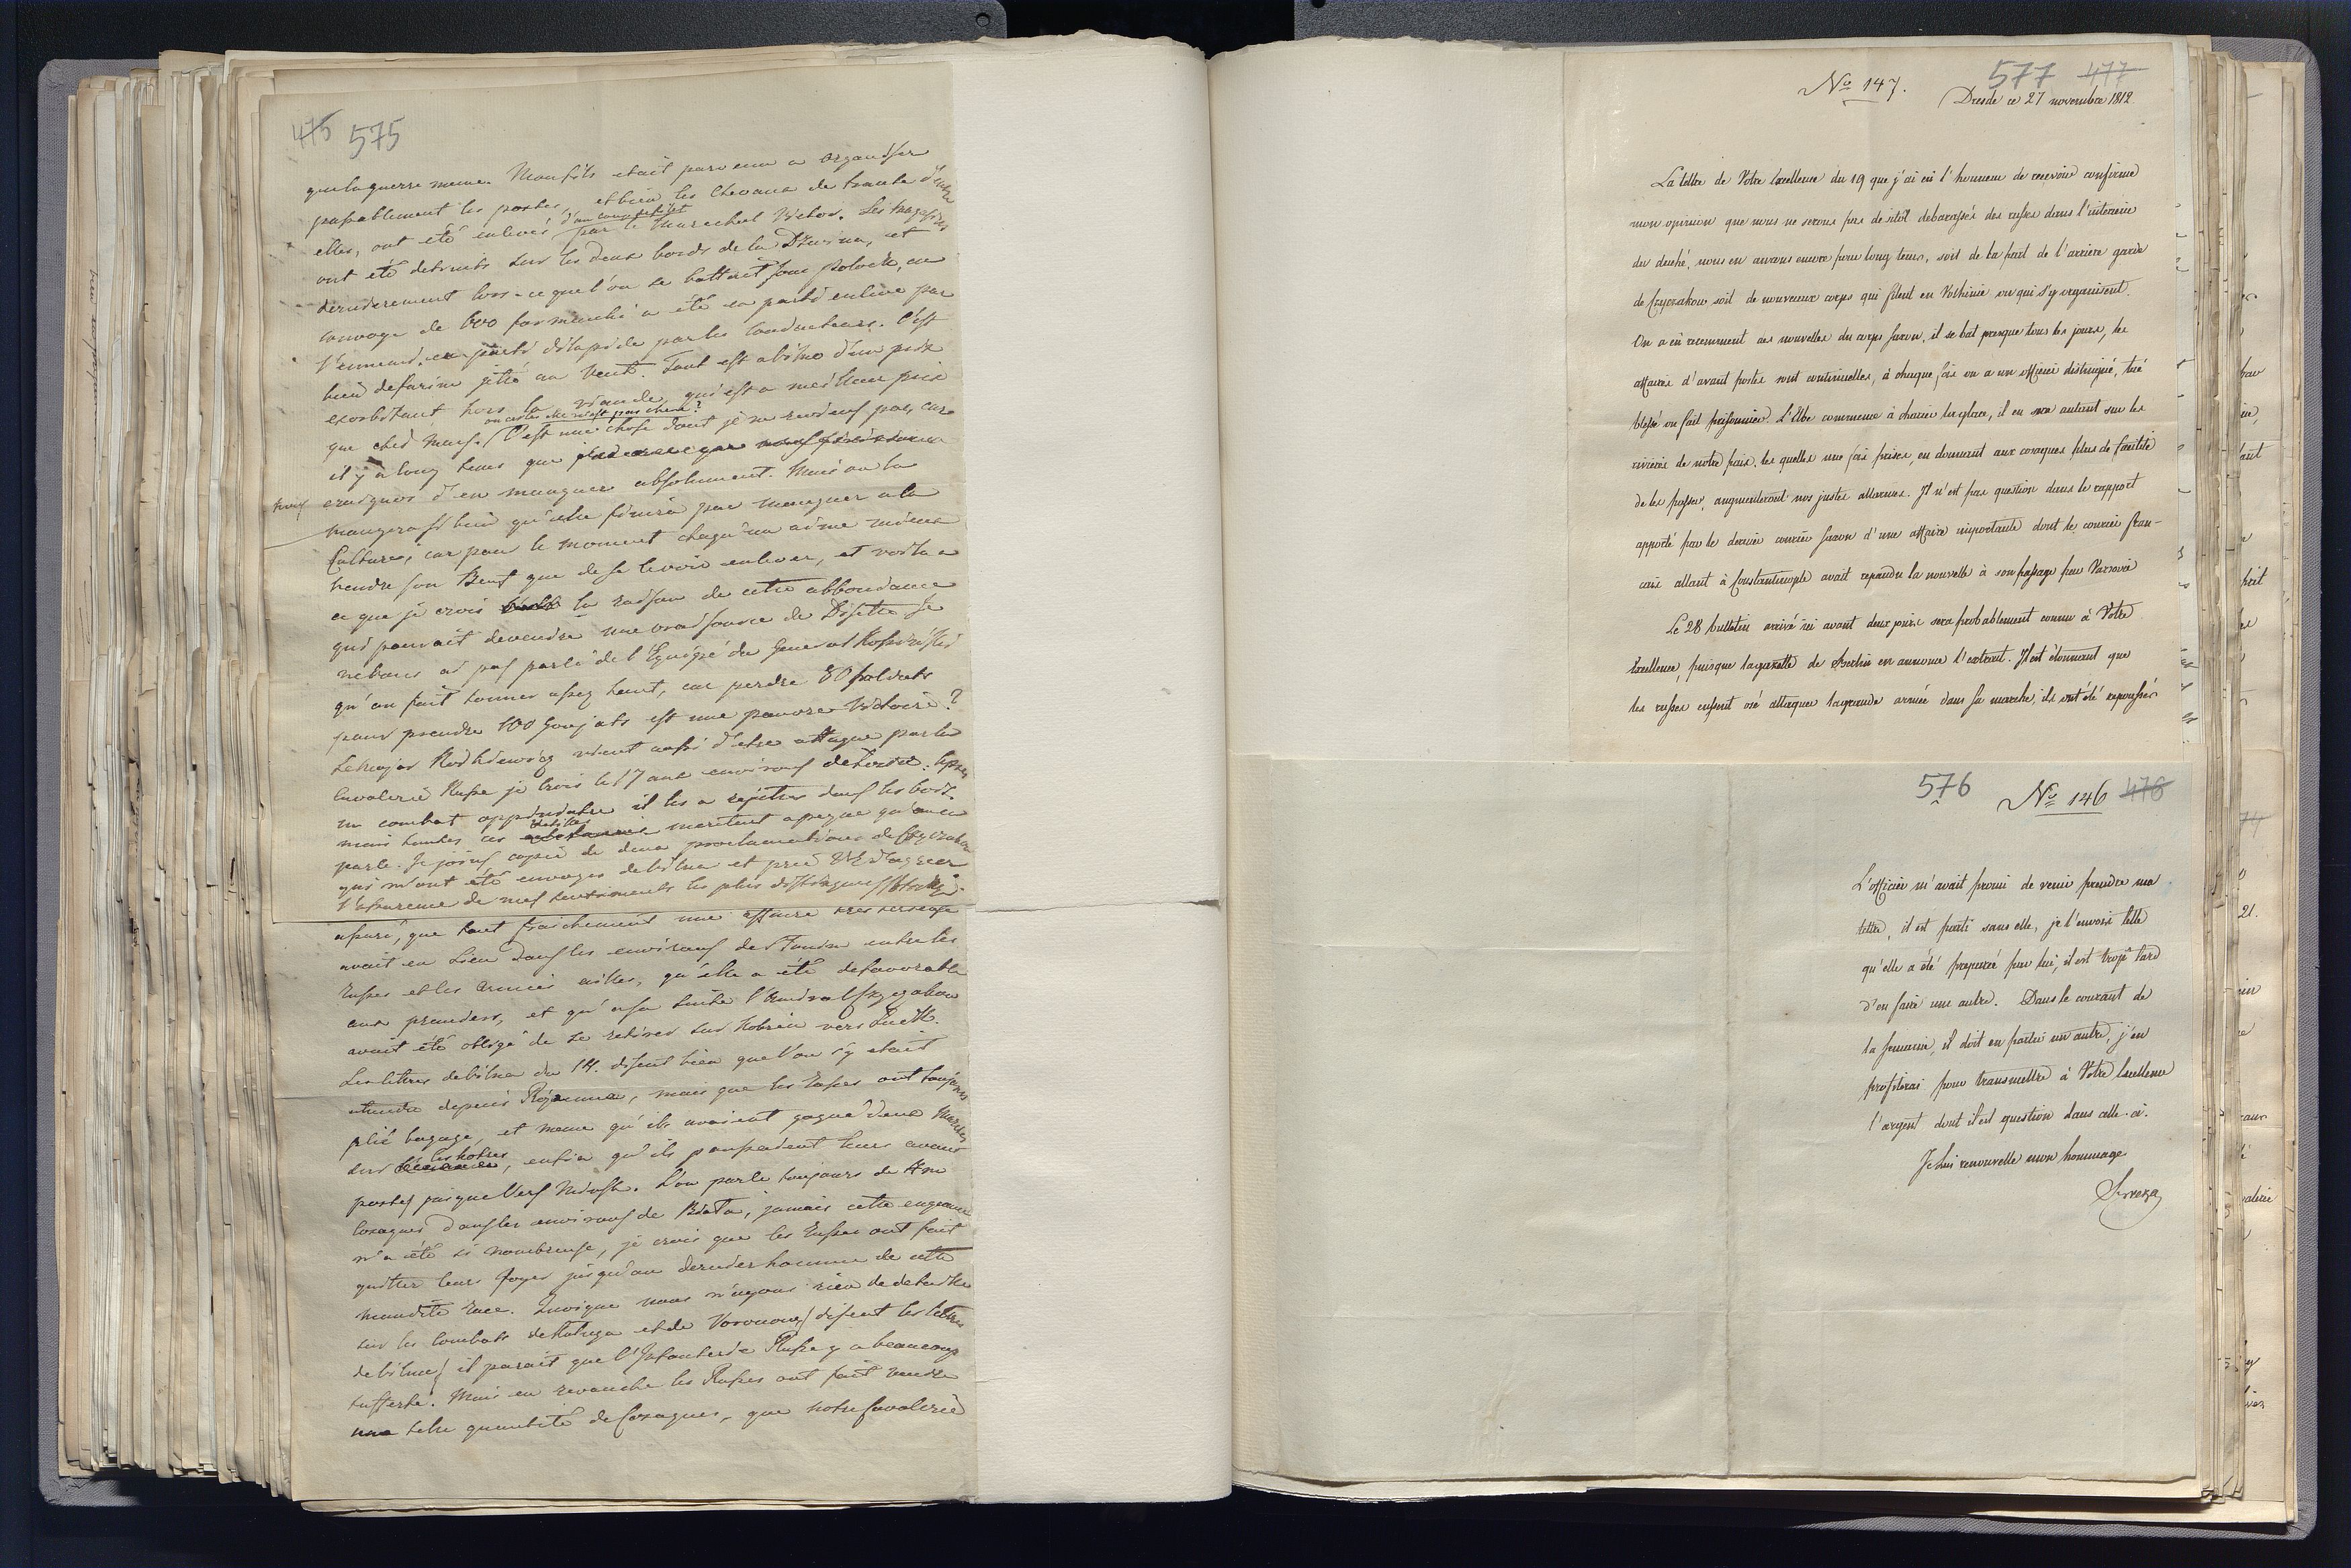 475 575
que la guerre meme. Monfils etait parvenu a organiser
passablement les postes, et bien les Chevaux de trante d'entre
elles, ont été enlevés d'un coup de filet par le Marechal Victor. Les Magasins
ont été detruits sur les deux bords de la Dzwina, et
dernierement lors-ce que l'on se battait sous Polock, un
convoye de 600 fas a été en partie enlevé par
l'ennemi, en partie dilapidé par les Conducteurs. C'est
bien de farine jetté au Vent. Tout est abimé d'un prix
exorbitant hors la viande, qui est a meilleur prix
que chez nous. C'est une chose dont je ne reviens pas, car
il y a long tems que
nous craignons d'en manquer absolument. Mais on la
mangera si bien qu'elle finira par manquer a la
Culture, car pour le moment chaqu'un aime mieux
vendre son Beuf que de se le voir enlever, et voila a
ce que je crois la raison de cette abbondance
qui pourrait devenir une vraie source de Disette. Je
ne vous ai pas parlé de l'Equipé du General Kossinski
qu'on fait sonner assez haut, car perdre 80 soldats
pour prendre 100 Goujats est une pauvre Victoire?
Le Major vient aussi d'etre attaque par la
Cavalerie Russe je crois le 17 aux environs de : apres
un combat opiniatre il les a rejettes dans les bois.
mais toutes ces meritent a peine qu'on en
parle. Je joins copie de deux proclamations de Czyczakow
qui m'ont été envoyes de Vilna et prie V E d'agreer
l'assurence de mes sentiments les plus distingues
assuré, que tout fraichement une affaire tres serieuse
avait eu Lieu dans les environs de entre les
Russes et les Armées aillies, qu'elle a été defavorable
aux premiers, et qu'a sa suite l'Amiral Czyczakow
avait été obligé de se retirer sur Kobrin vers Luck.
Les lettres de Vilna du 14. disent bien que l'on s'y etait
etendu depuis, mais que les Russes ont toujours
plié bagage, et meme qu'ils avaient gagné deux Marches
sur les notres, enfin qu'ils poussaient leurs avant
postes jusque Vers Minsk. L'on parle toujours de
Cosaques dans les environs de Biała, jamais cette engeance
n'a été si nombreuse, je crois que les Russes ont fait
quitter leurs foyer jusqu'au dernier homme de cette
maudite race. Quoique nous n'ayons rien de detaillé
sur les Combats de Kaluga et de Voronow disent les lettres
de Vilna, il parait que l'Infanterie Russe y a beaucoup
sufferte. Mais en revanche les Russes ont fait venir
une telle quantité de Cosaques, que notre Cavalerie
577 477
No 147.
Dresde ce 27 novembre 1812
La lettre de Votre Excellence du 19 que j'ai eü l'honneur de recevoir confirme
mon opinion que nous ne serons pas de sitôt debarassés des russes dans l'interieur
du duché, nous en aurons encore pour long tems, soit de la part de l'arriere garde
de Czyczakow soit de nouveaux corps qui filent en Volhinie ou qui s'y organisent.
On a eü recemment des nouvelles du corps saxon, il se bat presque tous les jours, les
affaires d'avant postes sont continuelles, à chaque fois on a un officier distingué, tué
blessé ou fait prisonnier. L'Elbe commence à charier la glace, il en sera autant sur les
rivieres de notre païs, les quelles une fois prises, en donnant aux cosaques plus de facilité
de les passer, augmenteront nos justes allarmes. Il n'est pas question dans le rapport
apporté par le dernier courier saxon d'une affaire importante dont le courier fran-
cais allant à Constantinople avait repandu la nouvelle à son passage par Varsovie
Le 28 bulletin arrivé ici avant deux jours sera probablement connu à Votre
Excellence, puisque la gazette de Berlin en annonce l'extrait. Il est étonnant que
les russes eussent osé attaquer la grande armée dans sa marche, ils ont été repoussés
576 No 146 476
L'officier m'avait promi de venir prendre ma
lettre, il est parti sans elle, je l'envoie telle
qu'elle a été preparée pour lui, il est trop tard
d'en faire une autre. Dans le courant de
la semaine, il doit en partir un autre, j'en
profiterai pour transmettre à Votre Excellence
l'argent dont il est question dans celle-ci.
Je lui renouvelle mon hommage